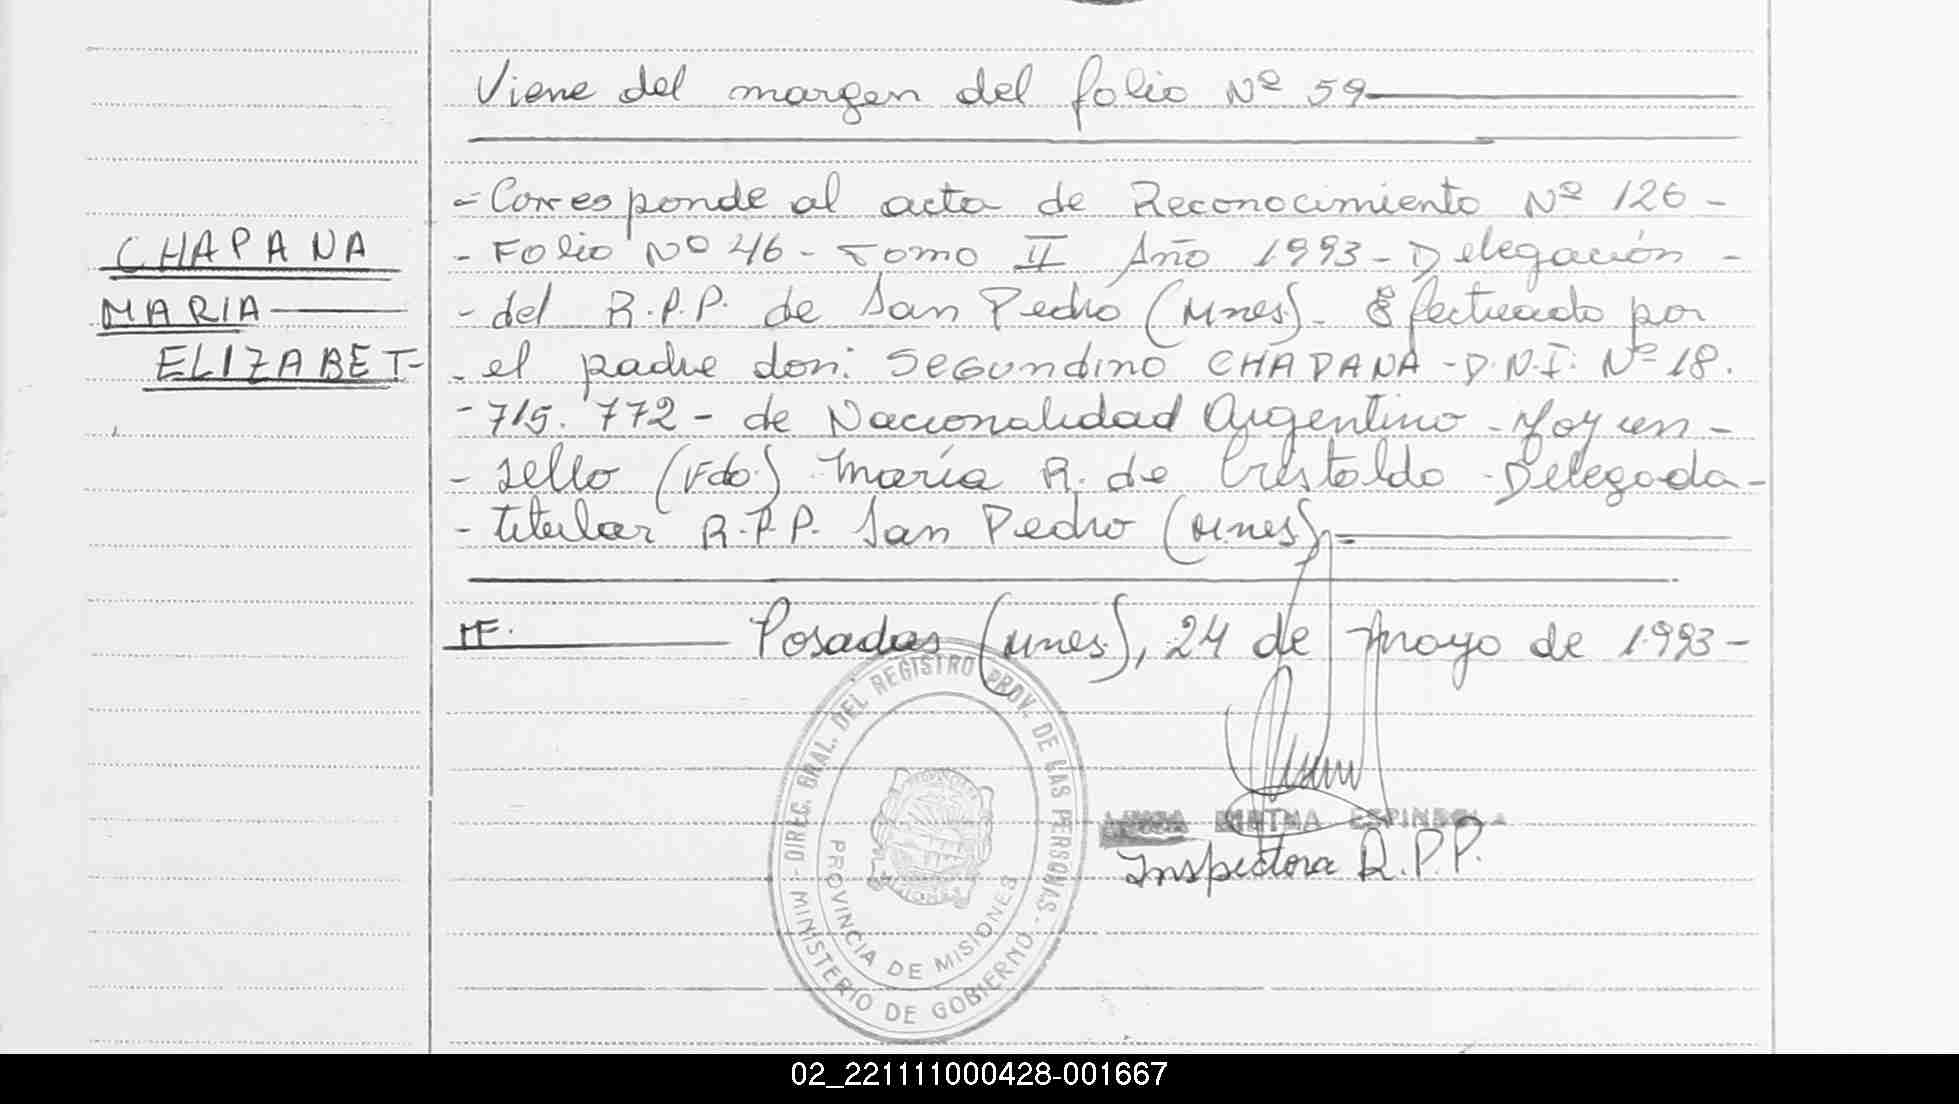 Viene del margen del folio Nº 59
CHAPANA
MARIA
ELIZABET-
- Corresponde al acta de Reconocimiento Nº 126 -
- Folio Nº 46 - Tomo II Año 1993 - Delegación -
- del R.P.P. de San Pedro (Mnes). Efectuado por
- el padre don: Segundino CHAPANA - D.N.I: Nº 18.
- 715. 772 - de Nacionalidad Argentino - Hay un -
- sello (Fdo.) María R. de Cristaldo - Delegada -
- titular R.P.P. San Pedro (Mnes).
MF. Posadas (Mnes), 24 de mayo de 1993 -
DIREC. GRAL. DEL REGISTRO PROV. DE LAS PERSONAS - MINISTERIO DE GOBIERNO -
PROVINCIA DE MISIONES
ESPINDOLA
Inspectora R.P.P.
02_221111000428-001667